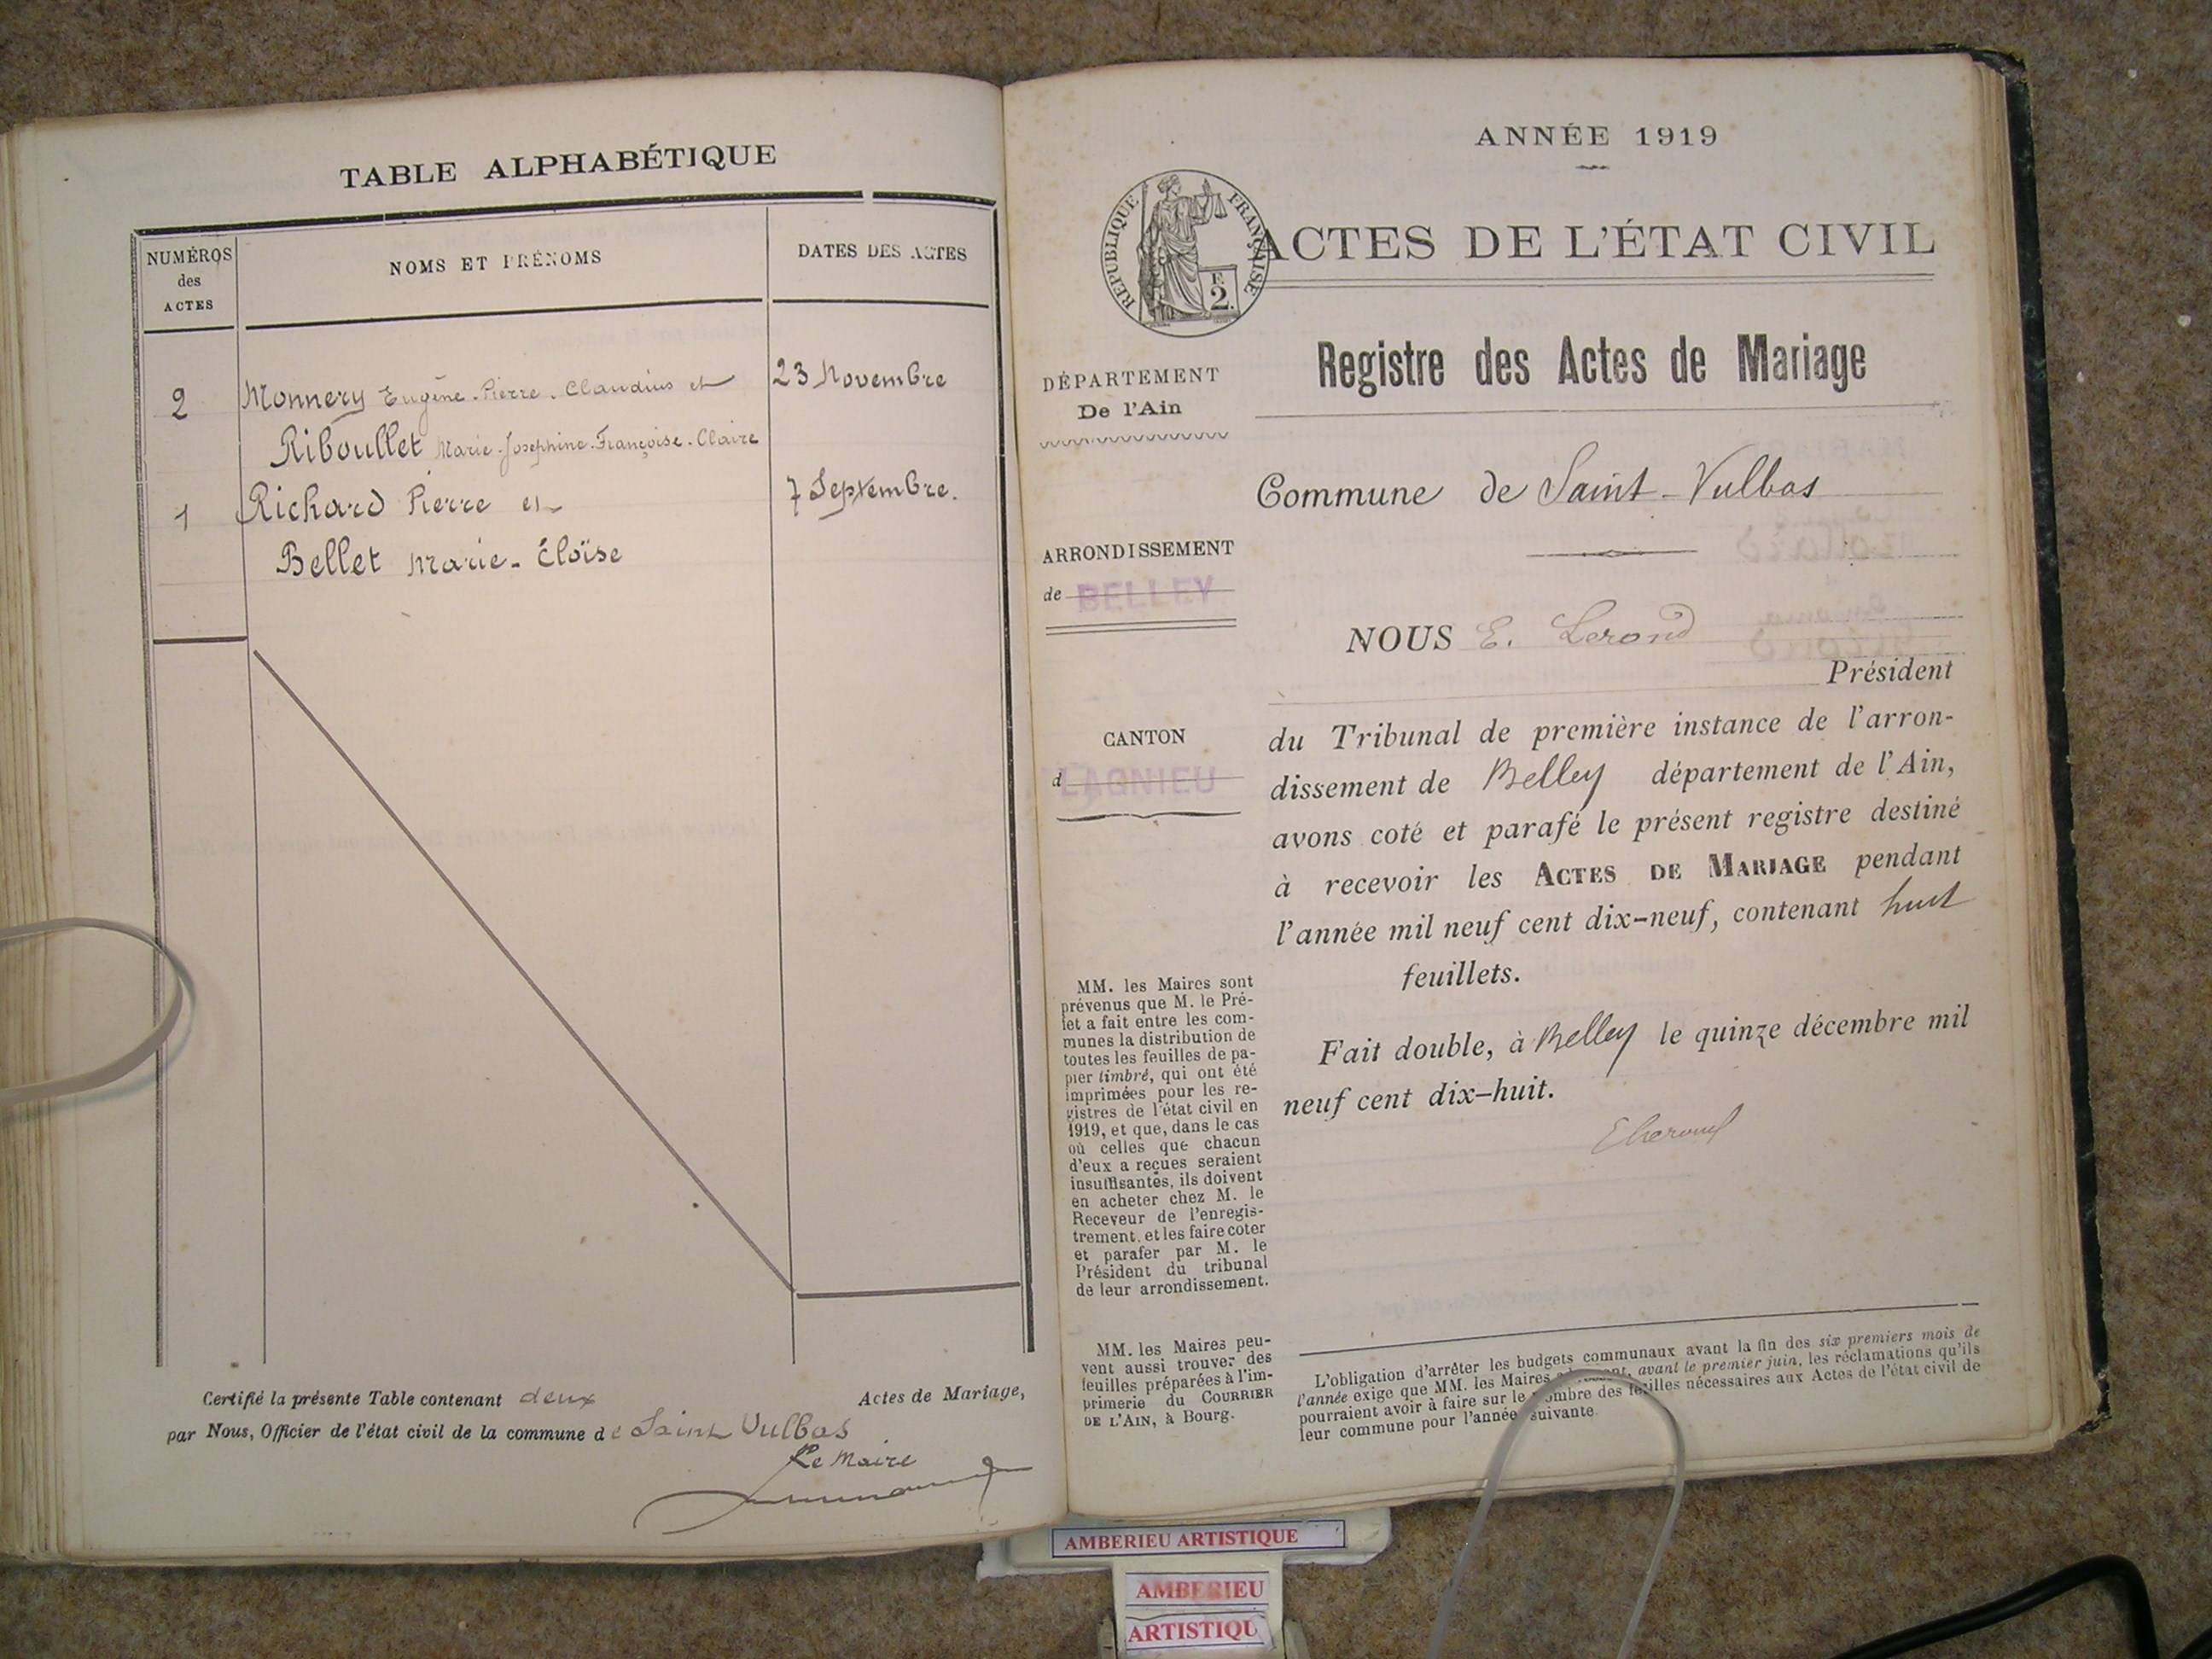 TABLE ALPHABÉTIQUE
NUMÉROS
des
ACTES
NOMS ET PRÉNOMS
DATES DES ACTES
2 Monnery Eugène-Pierre-Claudius et 23 Novembre
Riboullet Marie-Josephine-Françoise-Claire
1 Richard Pierre et 7 Septembre.
Bellet Marie-Éloïse
Certifié la présente Table contenant deux Actes de Mariage,
par Nous, Officier de l'état civil de la commune de Saint Vulbas
Le Maire
ANNÉE 1919
RÉPUBLIQUE FRANÇAISE
F
2
ACTES DE L'ÉTAT CIVIL
Registre des Actes de Mariage
DÉPARTEMENT
De l'Ain
Commune de Saint-Vulbas
ARRONDISSEMENT
de BELLEY
NOUS E. Lerond
Président
CANTON
d LAGNIEU
du Tribunal de première instance de l'arron-
dissement de Belley département de l'Ain,
avons coté et parafé le présent registre destiné
à recevoir les ACTES DE MARIAGE pendant
l'année mil neuf cent dix-neuf, contenant huit
feuillets.
Fait double, à Belley le quinze décembre mil
neuf cent dix-huit.
ELerond
MM. les Maires sont
prévenus que M. le Pré-
fet a fait entre les com-
munes la distribution de
toutes les feuilles de pa-
pier timbré, qui ont été
imprimées pour les re-
gistres de l'état civil en
1919, et que, dans le cas
où celles que chacun
d'eux a reçues seraient
insuffisantes, ils doivent
en acheter chez M. le
Receveur de l'enregis-
trement, et les faire coter
et parafer par M. le
Président du tribunal
de leur arrondissement.
MM. les Maires peu-
vent aussi trouver des
feuilles préparées à l'im-
primerie du COURRIER
DE L'AIN, à Bourg.
L'obligation d'arrêter les budgets communaux avant la fin des six premiers mois de
l'année exige que MM. les Maires avant le premier juin, les réclamations qu'ils
pourraient avoir à faire sur le nombre des feuilles nécessaires aux Actes de l'état civil de
leur commune pour l'année suivante.
AMBERIEU ARTISTIQUE
AMBERIEU
ARTISTIQU